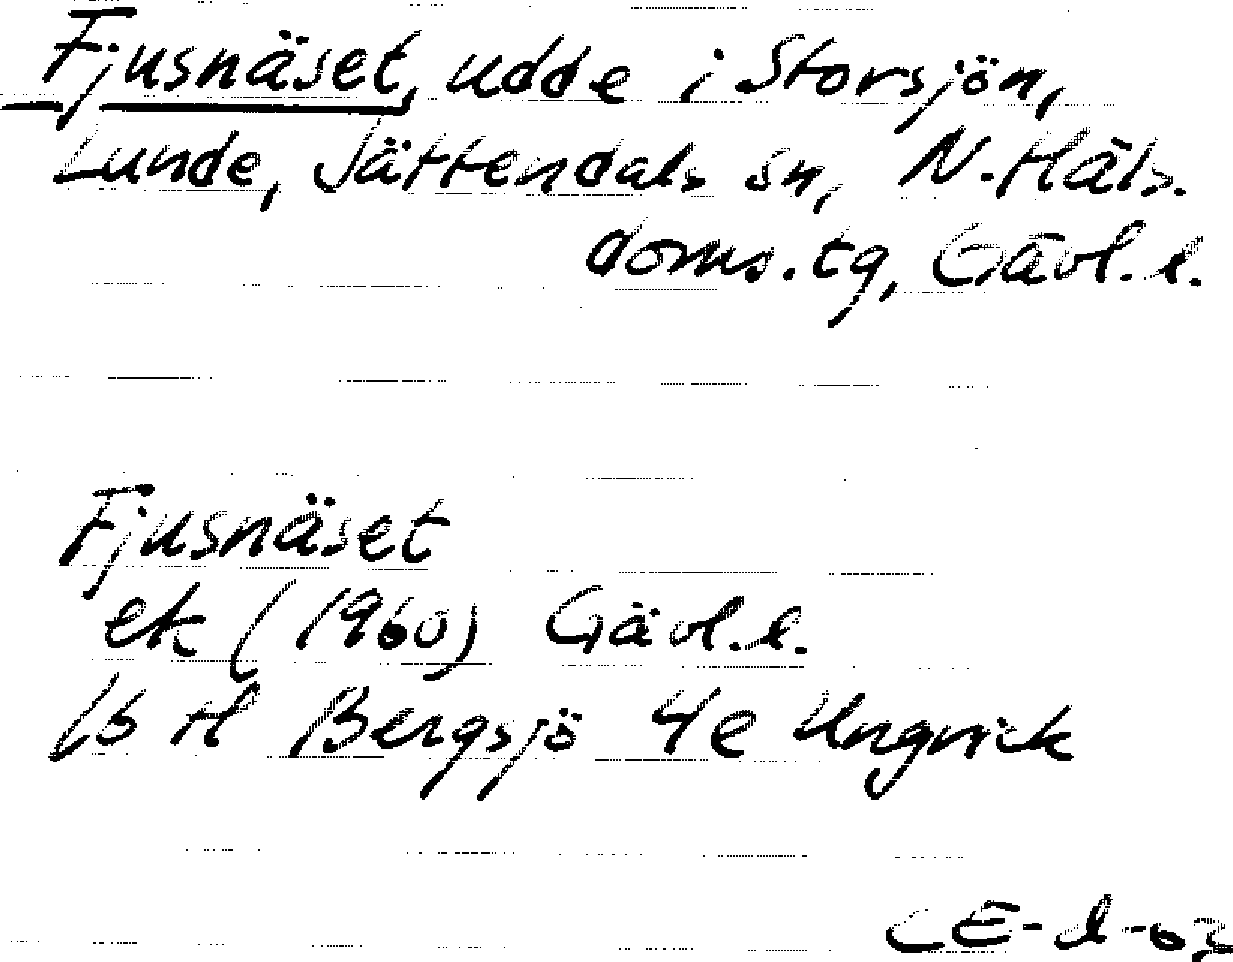 Fjusnäset, udde i Storsjön,
Lunde, Jättendals sn, N. Häls.
doms. tg, Gävl. l.
Fjusnäset
ek (1960) Gävl. l.
15 H Bergsjö 4e Ungvick
CE-l-63